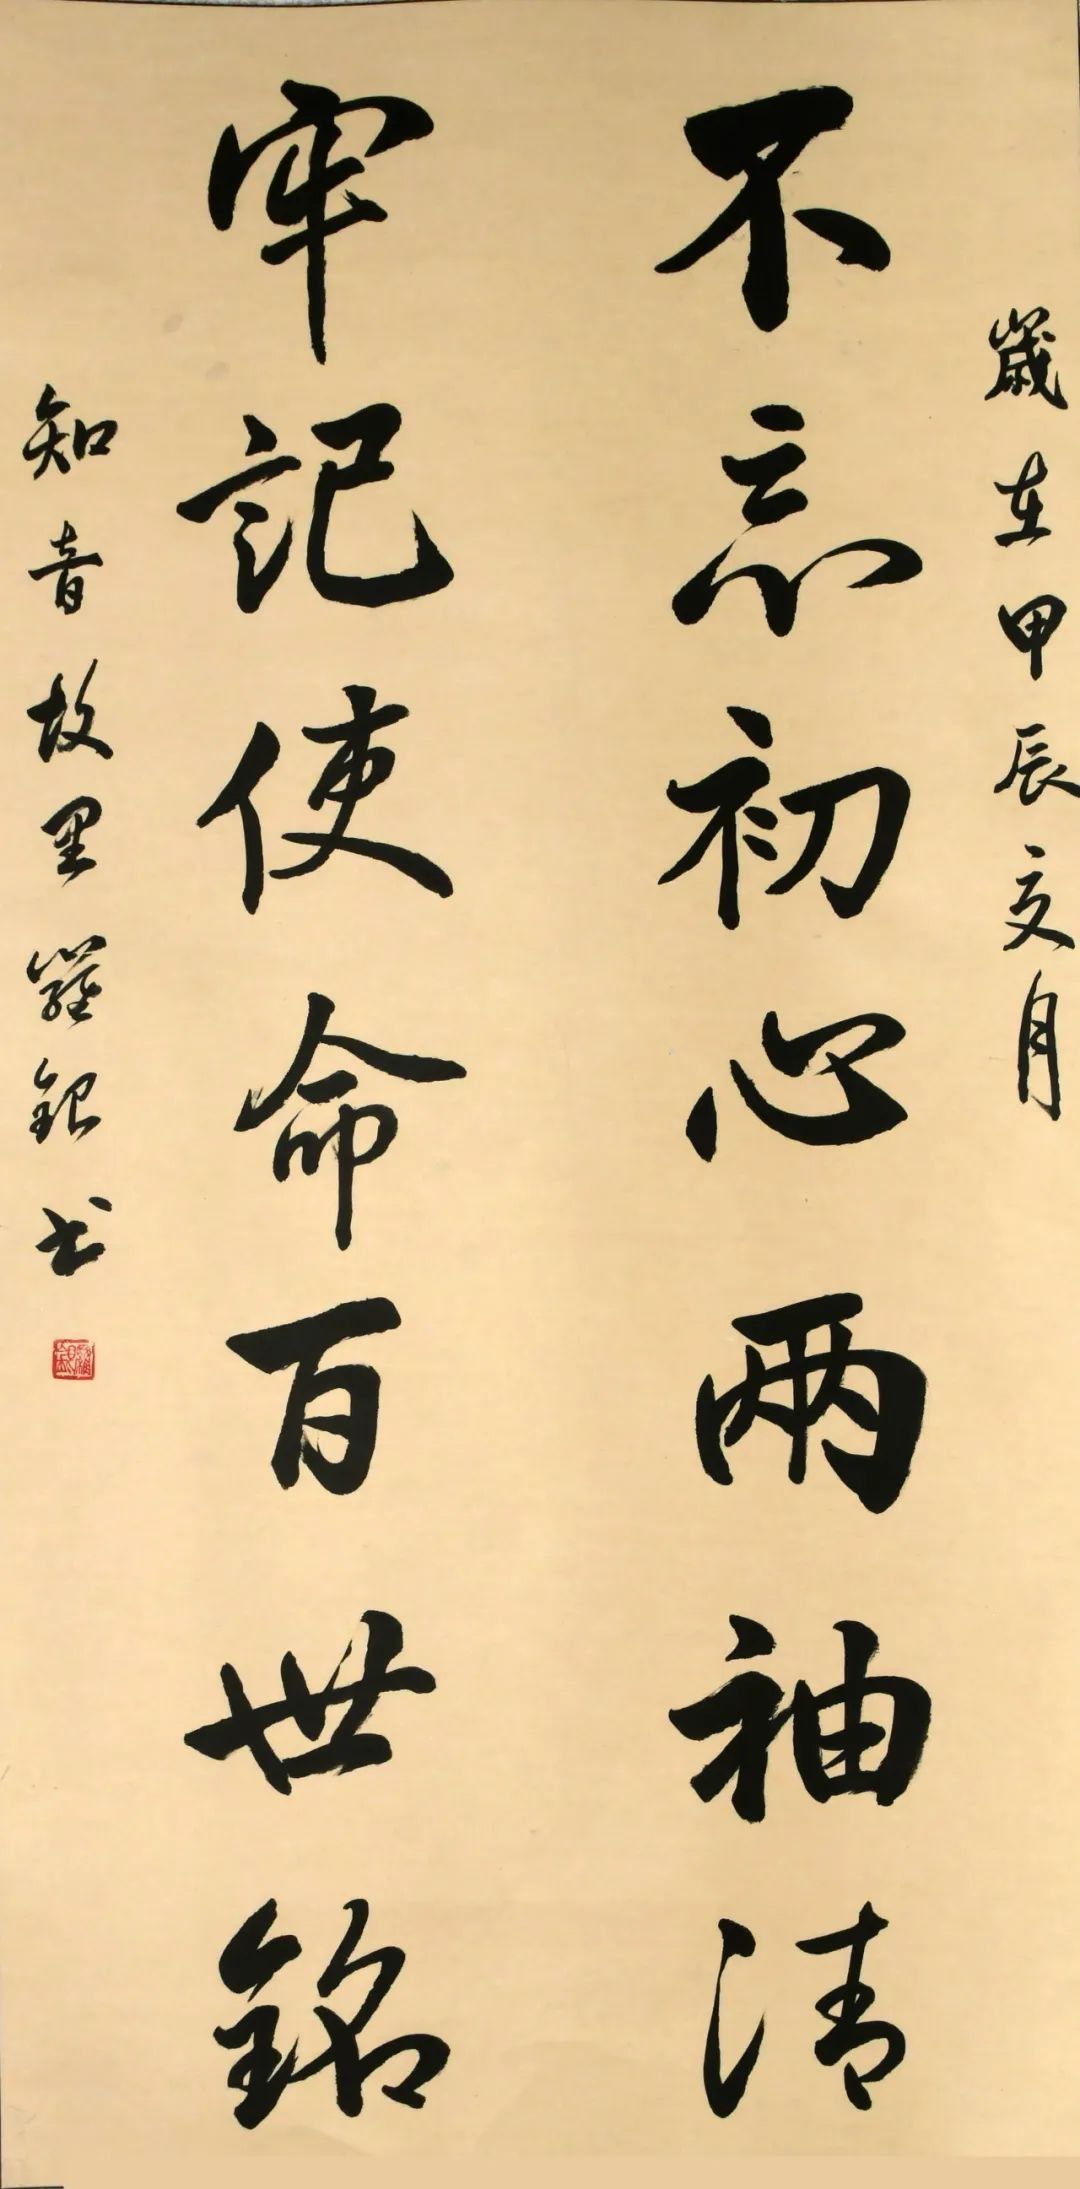 歲在甲辰夏月
不忘初心兩袖清
牢記使命百世銘
知音故里羅銀书